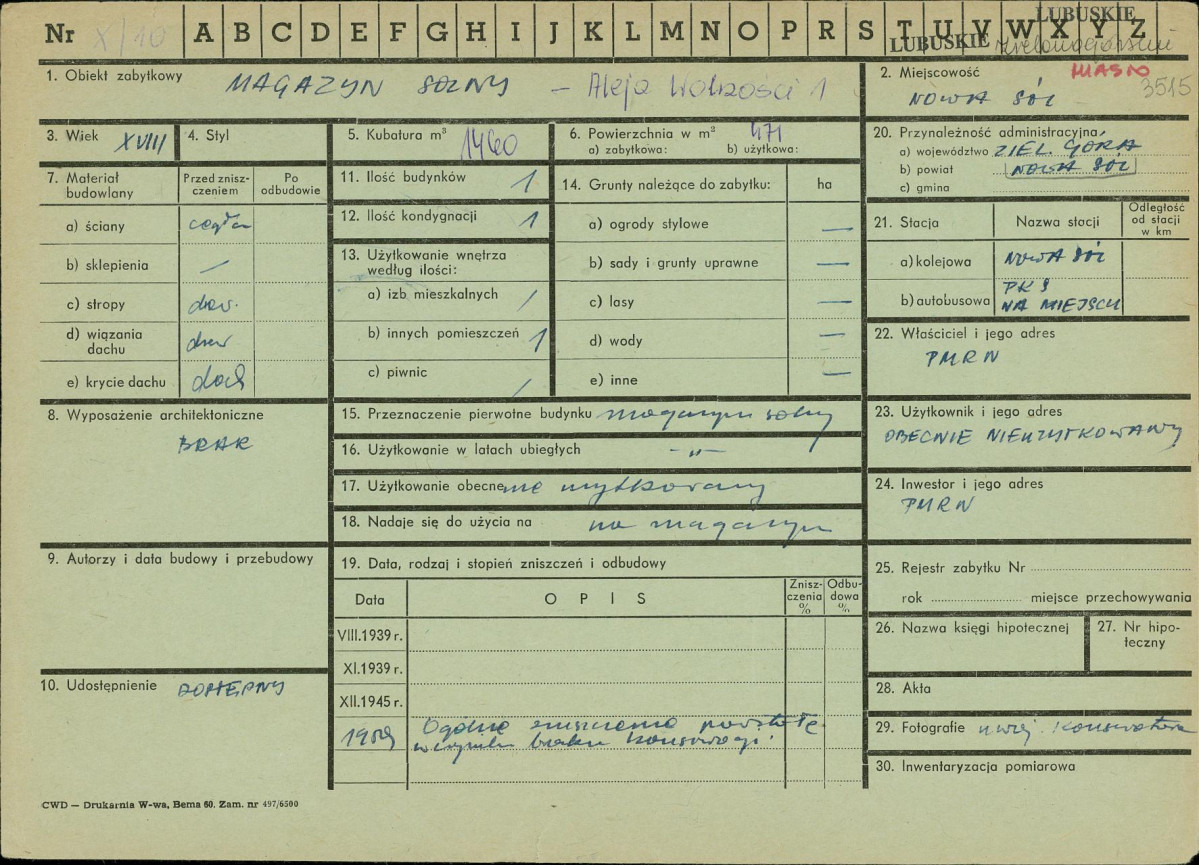 Nr X/10 A B C D E F G H I J K L M N O P R S T U V W X Y Z
LUBUSKIE
LUBUSKIE
1. Obiekt zabytkowy MAGAZYN SOLNY – Aleja Wolności 1
2. Miejscowość MIASTO
NOWA SÓL 3515
3. Wiek XVIII
4. Styl
5. Kubatura m³ 1460
6. Powierzchnia w m² 471
a) zabytkowa: b) użytkowa:
20. Przynależność administracyjna
a) województwo ZIEL. GÓRA
b) powiat NOWA SÓL
c) gmina
7. Materiał budowlany
Przed znisz-
czeniem
Po
odbudowie
a) ściany cegła
b) sklepienia —
c) stropy drew.
d) wiązania dachu drew
e) krycie dachu dach
11. Ilość budynków 1
12. Ilość kondygnacji 1
13. Użytkowanie wnętrza
według ilości:
a) izb mieszkalnych /
b) innych pomieszczeń 1
c) piwnic /
14. Grunty należące do zabytku: ha
a) ogrody stylowe —
b) sady i grunty uprawne —
c) lasy —
d) wody —
e) inne —
21. Stacja Nazwa stacji
Odległość
od stacji
w km
a) kolejowa NOWA SÓL
b) autobusowa PKS
NA MIEJSCU
22. Właściciel i jego adres
PMRN
8. Wyposażenie architektoniczne
BRAK
15. Przeznaczenie pierwotne budynku magazyn solny
16. Użytkowanie w latach ubiegłych -"-
17. Użytkowanie obecne nie użytkowany
18. Nadaje się do użycia na na magazyn
23. Użytkownik i jego adres
OBECNIE NIEUŻYTKOWANY
24. Inwestor i jego adres
PMRN
9. Autorzy i data budowy i przebudowy
19. Data, rodzaj i stopień zniszczeń i odbudowy
Data OPIS
Znisz-
czenia
%
Odbu-
dowa
%
VIII.1939 r.
XI.1939 r.
XII.1945 r.
1959 Ogólne zniszczenia powstałe
w wyniku braku konserwacji.
25. Rejestr zabytku Nr
rok miejsce przechowywania
26. Nazwa księgi hipotecznej
27. Nr hipo-
teczny
10. Udostępnienie DOSTĘPNY
28. Akta
29. Fotografie u woj. Konserwatora
30. Inwentaryzacja pomiarowa
CWD — Drukarnia W-wa, Bema 60. Zam. nr 497/6500